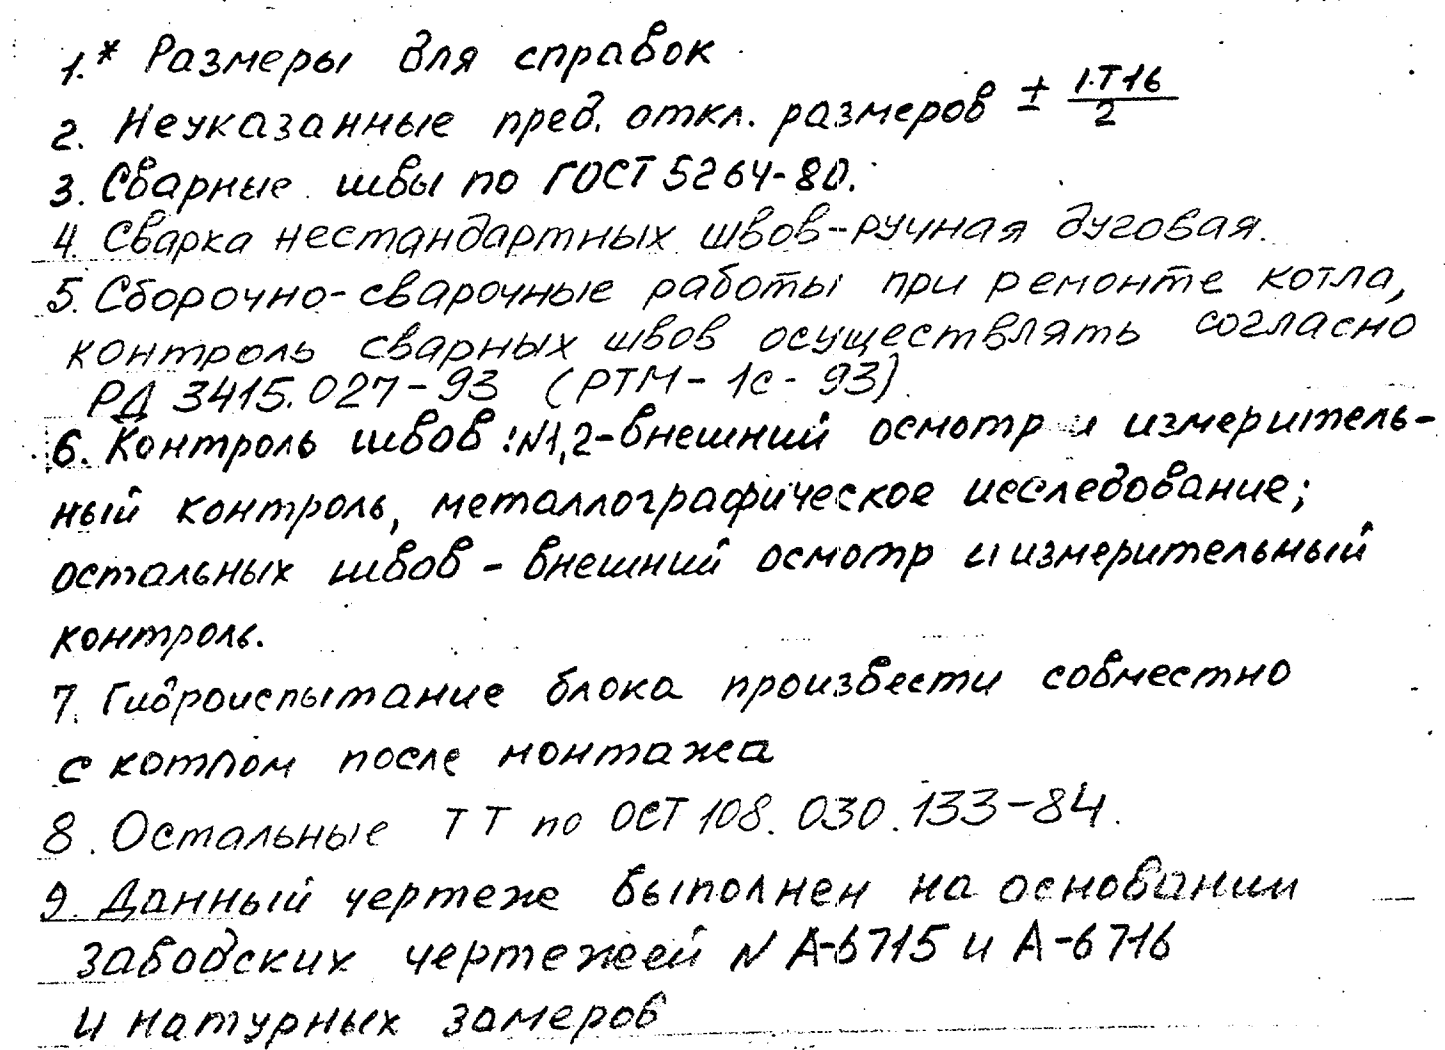 1.* Размеры для справок
2. Неуказанные пред. откл. размеров ± IT16/2
3. Сварные швы по ГОСТ 5264-80.
4. Сварка нестандартных швов-ручная дуговая.
5. Сборочно-сварочные работы при ремонте котла,
контроль сварных швов осуществлять согласно
РД 3415.027-93 (РТМ-1с-93)
6. Контроль швов: N1,2-внешний осмотр и измеритель-
ный контроль, металлографическое исследование;
остальных швов - внешний осмотр и измерительный
контроль.
7. Гидроиспытание блока произвести совместно
с котлом после монтажа
8. Остальные ТТ по ОСТ 108.030.133-84.
9. Данный чертеж выполнен на основании
заводских чертежей N А-6715 и А-6716
и натурных замеров